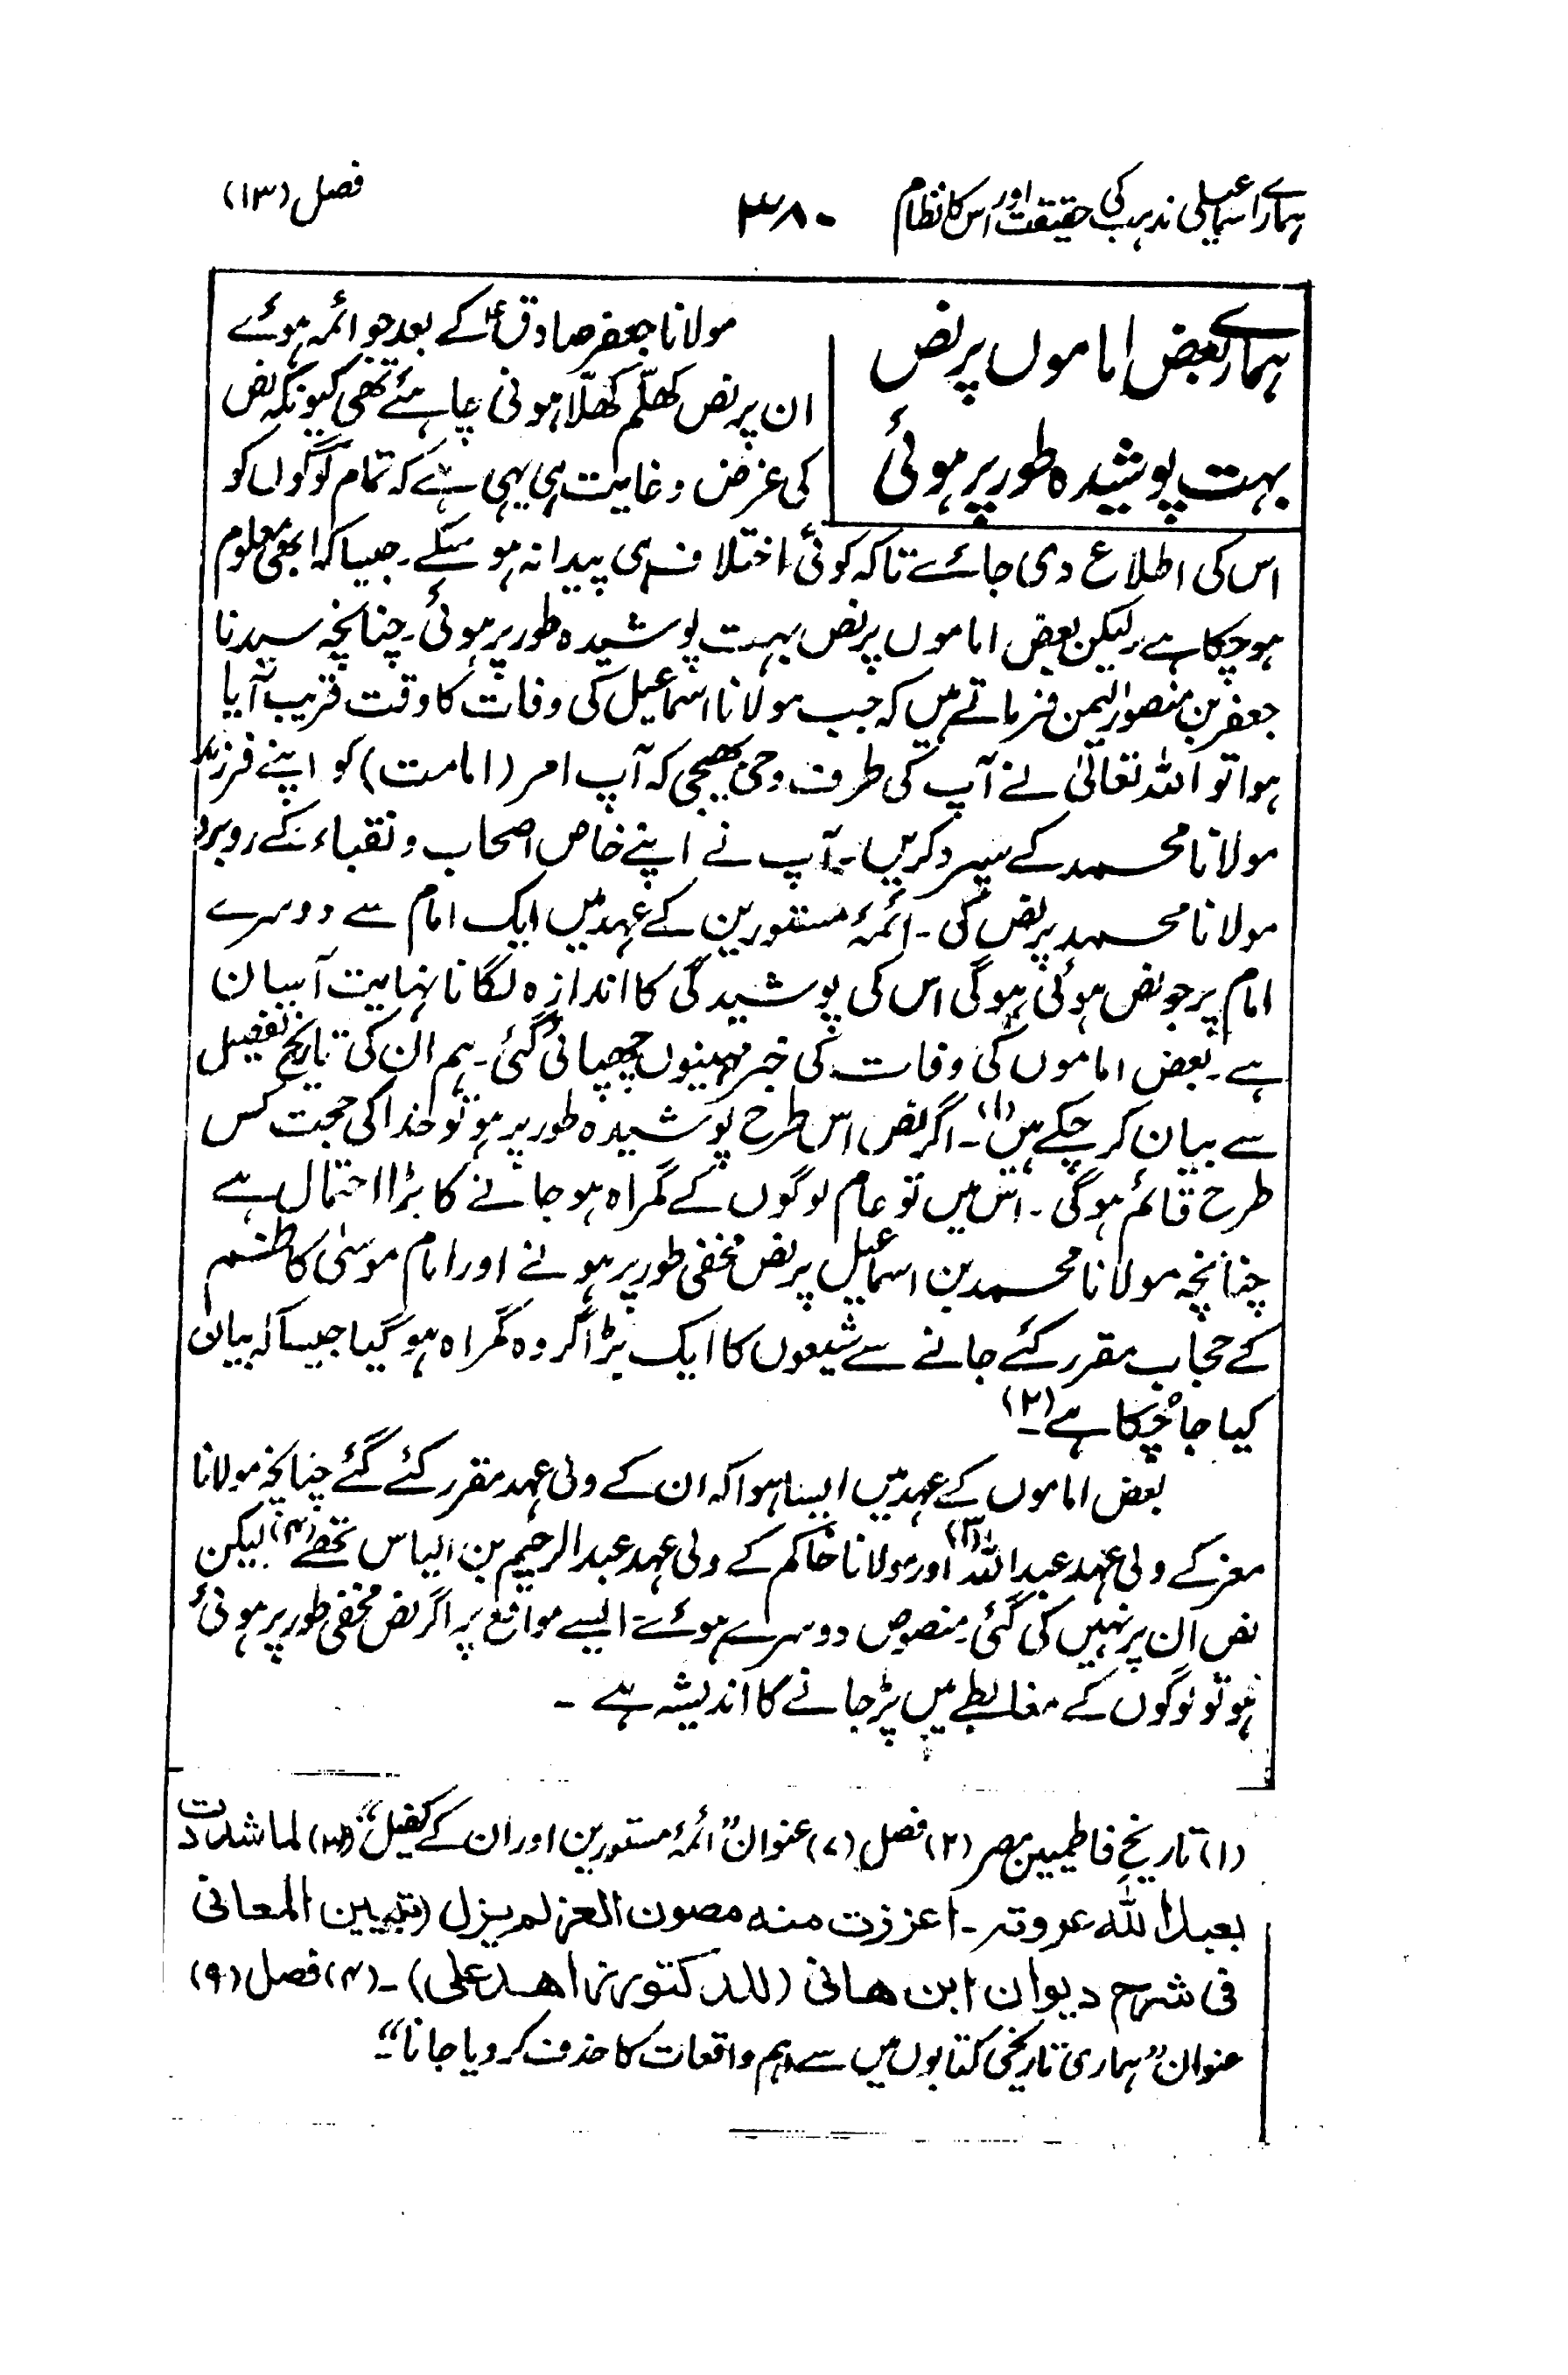 ہمارے اسماعیلی مذہب کی حقیقت اور اس کا نظام ۳۸۰ فصل (۱۳)
ہمارے بعض اماموں پر نص
بہت پوشیدہ طور پر ہوئی
مولانا جعفر صادقؑ کے بعد جو ائمہ ہوئے
ان پر نص کھلّم کھلّا ہونی چاہئے تھی کیونکہ نص
کی غرض و غایت ہی یہی ہے کہ تمام لوگوں کو
اس کی اطلاع دی جائے تاکہ کوئی اختلاف ہی پیدا نہ ہو سکے۔ جیسا کہ ابھی معلوم
ہو چکا ہے۔ لیکن بعض اماموں پر نص بہت پوشیدہ طور پر ہوئی۔ چنانچہ سیدنا
جعفر بن منصور الیمن فرماتے ہیں کہ جب مولانا اسماعیل کی وفات کا وقت قریب آیا
ہوا تو اللہ تعالیٰ نے آپ کی طرف وحی بھیجی کہ آپ امر (امامت) کو اپنے فرزند
مولانا محمد کے سپرد کریں۔ آپ نے اپنے خاص اصحاب و نقباء کے روبرو
مولانا محمد پر نص کی۔ ائمۂ مستورین کے عہد میں ایک امام سے دوسرے
امام پر جو نص ہوئی ہوگی اس کی پوشیدگی کا اندازہ لگانا نہایت آسان
ہے۔ بعض اماموں کی وفات کی خبر مہینوں چھپائی گئی۔ ہم ان کی تاریخ تفصیل
سے بیان کر چکے ہیں(۱)۔ اگر نص اس طرح پوشیدہ طور پر ہو تو خدا کی حجت کس
طرح قائم ہوگی۔ اس میں تو عام لوگوں کے گمراہ ہو جانے کا بڑا احتمال ہے
چنانچہ مولانا محمد بن اسماعیل پر نص مخفی طور پر ہونے اور امام موسیٰ کاظم
کے حجاب مقرر کئے جانے سے شیعوں کا ایک بڑا گروہ گمراہ ہو گیا جیسا کہ بیان
کیا جا چکا ہے(۲)۔
بعض اماموں کے عہد میں ایسا ہوا کہ ان کے ولی عہد مقرر کئے گئے چنانچہ مولانا
معز کے ولی عہد عبد اللہ(۳) اور مولانا حاکم کے ولی عہد عبد الرحیم بن الیاس تھے(۴) لیکن
نص ان پر نہیں کی گئی۔ منصوص دوسرے ہوئے۔ ایسے مواقع پر اگر نص مخفی طور پر ہوئی
ہو تو لوگوں کے مغالطے میں پڑ جانے کا اندیشہ ہے ۔
(۱) تاریخ فاطمیین مصر (۲) فصل (۷) عنوان "ائمۂ مستورین اور ان کے کفیل" (۳) لما شددت
بعبد اللہ عروتہ ۔ اعززت منہ مصون العز لم یزل (تبیین المعانی
فی شرح دیوان ابن ھانی (للدکتور زاھد علی)۔ (۴) فصل (۹)
عنوان "ہماری تاریخی کتابوں میں سے اہم واقعات کا حذف کر دیا جانا"۔